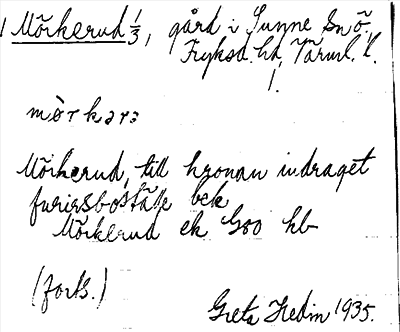 Mörkerud 1/3, gård i Sunne sn ö.
Fryksd. hd, Värml. l.
1.
mò̀rkər:
Mörkerud, till kronan indraget
furirsboställe bek
Mörkerud ek Geo kb
(forts.)
Greta Hedin 1935.